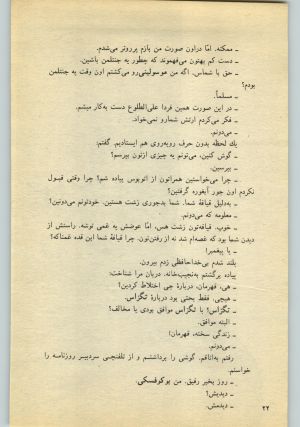 ـ ممکنه. امّا دراون صورت من بازم پرروتر می‌شدم.
ـ دست کم بهتون می‌فهموند که چطور یه جنتلمن باشین.
ـ حق با شماس. اگه من موسولینی‌رو می‌کشتم اون وقت یه جنتلمن
بودم؟
ـ مسلماً.
ـ در این صورت همین فردا علی‌الطلوع دست به‌کار میشم.
ـ فکر می‌کردم ارتش شمارو نمی‌خواد.
ـ می‌دونم.
یك لحظه بدون حرف روبه‌روی هم ایستادیم. گفتم:
ـ گوش کنین، می‌تونم یه چیزی ازتون بپرسم؟
ـ بپرسین.
ـ چرا می‌خواستین همراتون از اتوبوس پیاده شم؟ چرا وقتی قبول
نکردم اون جور آبغوره گرفتین؟
ـ به‌دلیل قیافهٔ شما. شما بدجوری زشت هستین. خودتونم می‌دونین؟
ـ معلومه که می‌دونم.
ـ خوب. قیافه‌تون زشت هس، امّا عوضش یه غمی توشه. راستش از
دیدن شما بود که غصه‌ام شد نه از رفتن‌تون. چرا قیافهٔ شما این قده غمناکه؟
ـ یا پیغمبر!
بلند شدم بی‌خداحافظی زدم بیرون.
پیاده برگشتم به‌نجیب‌خانه. دربان مرا شناخت:
ـ هی، قهرمان، دربارهٔ چی اختلاط کردین؟
ـ هیچی. فقط بحثی بود دربارهٔ تگزاس.
ـ تگزاس؟ با تگزاس موافق بودی یا مخالف؟
ـ البته موافق.
ـ زندگی سخته، قهرمان!
ـ می‌دونم.
رفتم به‌اتاقم. گوشی را برداشتم و از تلفنچی سردبیر روزنامه را
خواستم.
ـ روز بخیر رفیق. من بوکوفسکی.
ـ دیدیش؟
ـ دیدمش.
۲۲